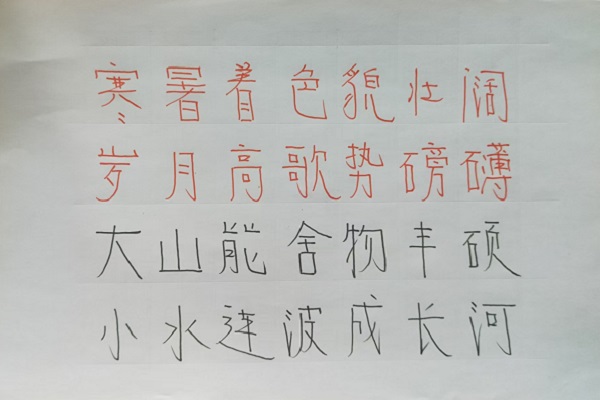 寒暑着色貌壮阔
岁月高歌势磅礴
大山能舍物丰硕
小水连波成长河